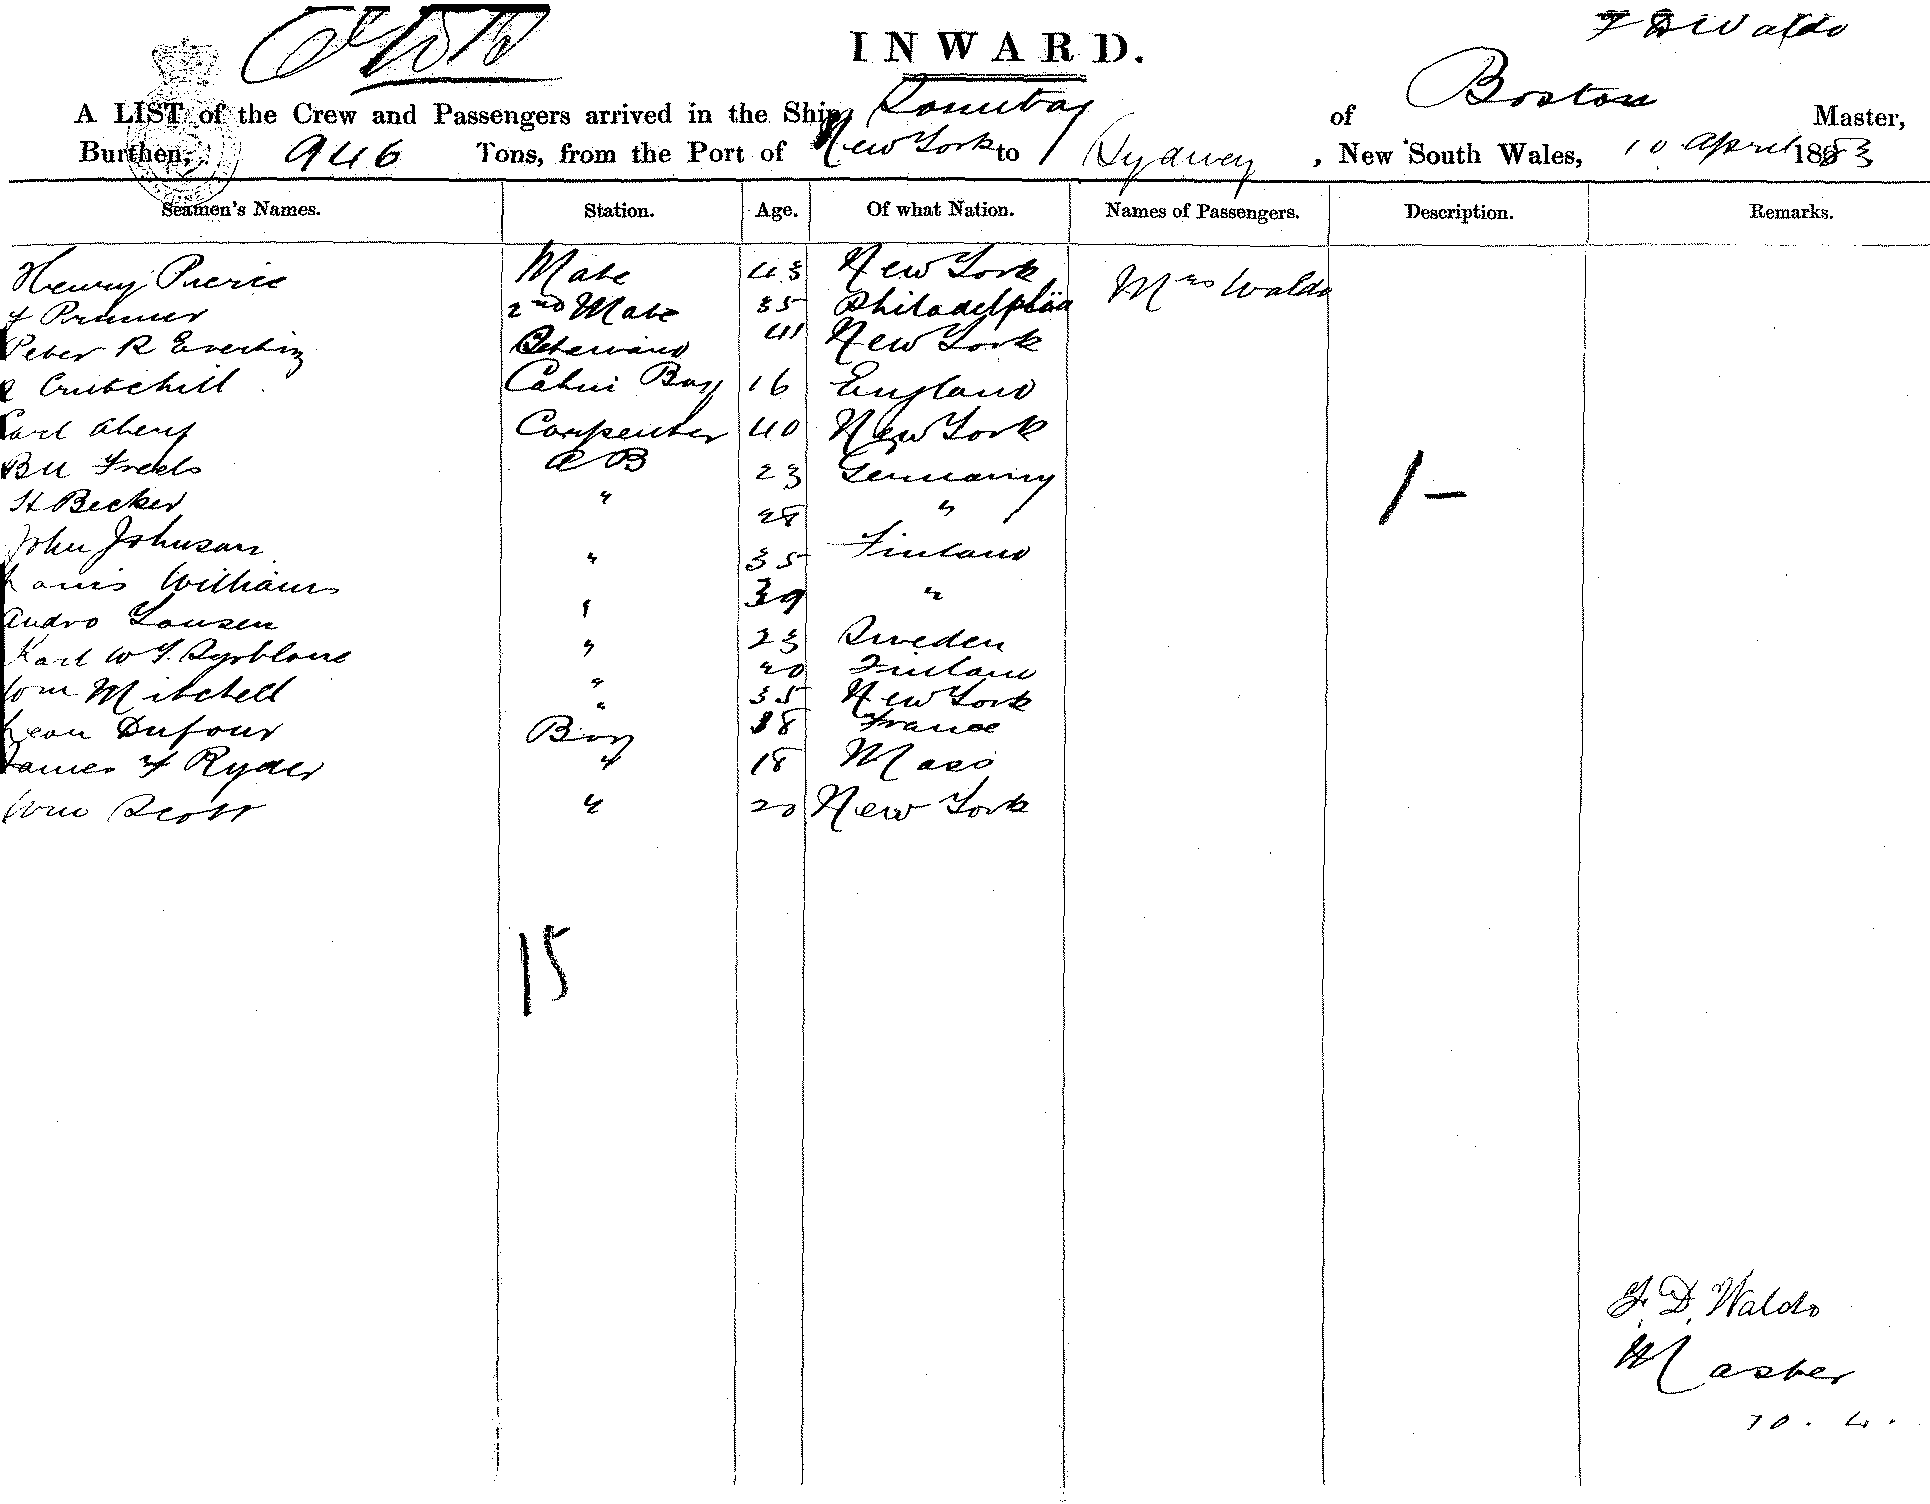 INWARD.
F D Waldo
A LIST of the Crew and Passengers arrived in the Ship, of Boston Master,
Burthen, 946 Tons, from the Port of New York to Sydney, New South Wales, 10 April 1883
Seamen's Names. Station. Age. Of what Nation. Names of Passengers. Description. Remarks.
Henry Pierce Mate 43 New York Mrs Waldo
2nd Mate 35 Philadelphia
Peter R 41 New York
Crutchill Cabin Boy 16 England
Carl Carpenter 40 New York
Freels A B 23 Germany
H Becker " 28 "
John Johnson " 35 Finland
Louis Williams " 39 "
Andro " 23 Sweden
Karl W " 20 Finland
Tom Mitchell " 35 New York
Leon Dufour Boy 18 France
James F Ryder " 18 Mass
Wm Scott " 20 New York
1 –
15
F. D. Waldo
Master
10. 4.